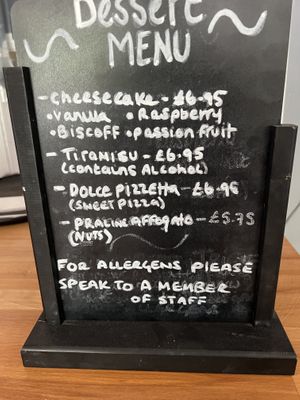 Dessert
MENU
- Cheesecake - £6.95
• Vanilla • Raspberry
• Biscoff • passion fruit
- Tiramisu - £6.95
(contains Alcohol)
- Dolce Pizzetta - £6.95
(Sweet Pizza)
- Praline Affogato - £5.75
(Nuts)
FOR ALLERGENS PLEASE
SPEAK TO A MEMBER
OF STAFF